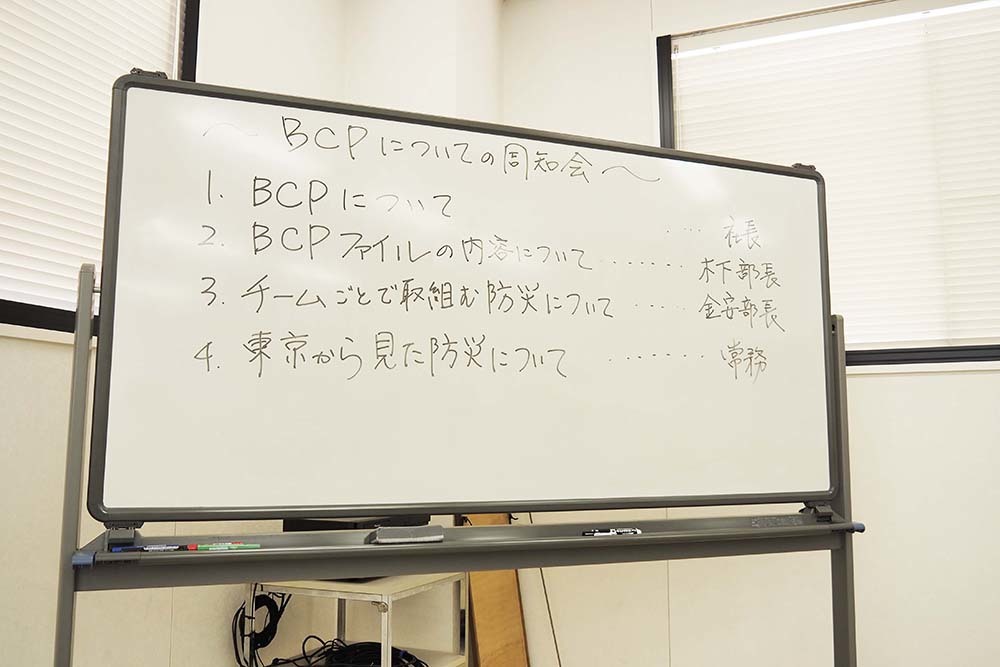 ～BCPについての周知会～
1. BCPについて ‥‥ 社長
2. BCPファイルの内容について ‥‥‥ 木下部長
3. チームごとで取組む防災について ‥‥‥ 金安部長
4. 東京から見た防災について ‥‥‥‥ 常務